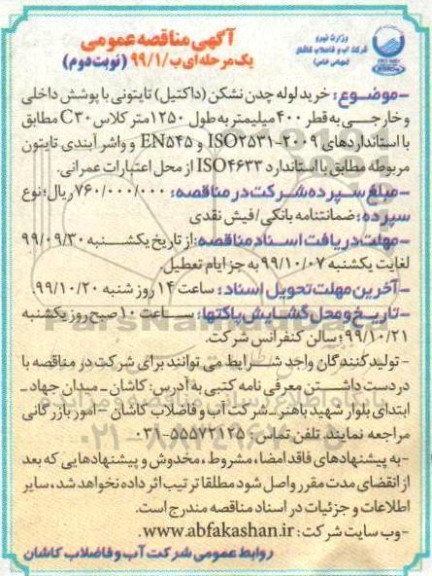 وزارت نیرو
شرکت آب و فاضلاب کاشان
(سهامی خاص)
آگهی مناقصه عمومی
یک مرحله‌ای ب/۹۹/۱ (نوبت دوم)
-موضوع: خرید لوله چدن نشکن (داکتیل) تایتونی با پوشش داخلی
و خارجی به قطر ۴۰۰ میلیمتر به طول ۱۲۵۰ متر کلاس C۳۰ مطابق
با استانداردهای ISO۲۵۳۱-۲۰۰۹ و EN۵۴۵ و واشر آببندی تایتون
مربوطه مطابق با استاندارد ISO۴۶۳۳ از محل اعتبارات عمرانی.
-مبلغ سپرده شرکت در مناقصه: ۷۶۰/۰۰۰/۰۰۰ ریال؛ نوع
سپرده: ضمانتنامه بانکی/فیش نقدی
-مهلت دریافت اسناد مناقصه: از تاریخ یکشنبه ۹۹/۰۹/۳۰
لغایت یکشنبه ۹۹/۱۰/۰۷ به جز ایام تعطیل.
-آخرین مهلت تحویل اسناد: ساعت ۱۴ روز شنبه ۹۹/۱۰/۲۰.
-تاریخ و محل گشایش پاکتها: ساعت ۱۰ صبح روز یکشنبه
۹۹/۱۰/۲۱؛ سالن کنفرانس شرکت.
- تولیدکنندگان واجد شرایط می توانند برای شرکت در مناقصه با
در دست داشتن معرفی نامه کتبی به آدرس: کاشان ـ میدان جهاد ـ
ابتدای بلوار شهید باهنر ـ شرکت آب و فاضلاب کاشان - امور بازرگانی
مراجعه نمایند. تلفن تماس: ۵۵۵۷۲۱۲۵-۰۳۱
-به پیشنهادهای فاقد امضا، مشروط، مخدوش و پیشنهادهایی که بعد
از انقضای مدت مقرر واصل شود مطلقا ترتیب اثر داده نخواهد شد، سایر
اطلاعات و جزئیات در اسناد مناقصه مندرج است.
-وب سایت شرکت: www.abfakashan.ir
روابط عمومی شرکت آب و فاضلاب کاشان